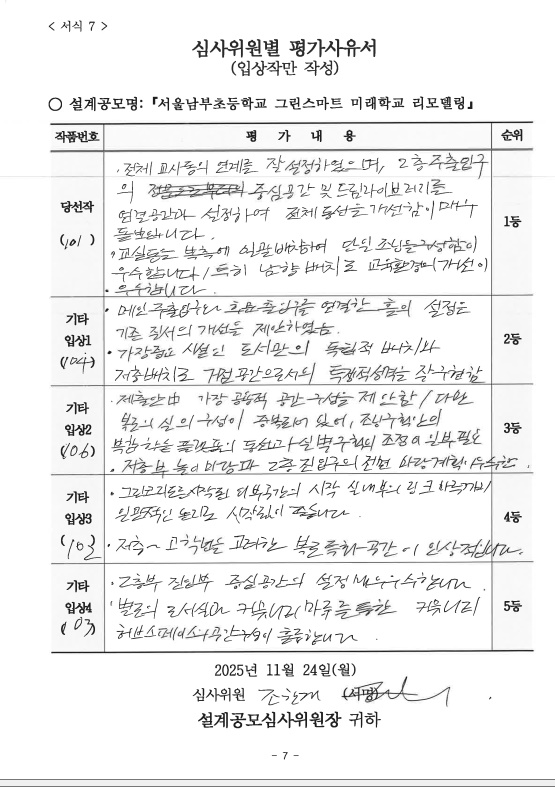 < 서식 7 >
심사위원별 평가사유서
(입상작만 작성)
○ 설계공모명: 『서울남부초등학교 그린스마트 미래학교 리모델링』
작품번호 평 가 내 용 순위
당선작
(101)
· 전체 교사동의 연계를 잘 설정하였으며, 2층 주출입구
의 중심공간 및 드림라이브러리를
연결공간과 설정하여 전체동선을 개선함이 매우
돌보입니다.
· 교실동은 북측에 일괄배치하여 단위조닝을 구성함이
우수합니다 / 특히 남향 배치로 교육환경의 개선이
· 우수합니다.
1등
기타
입상1
(104)
· 메인주출입구와 출입구를 연결한 홀의 설정은
기존 질서의 개선을 제안하였음.
· 가장중요 시설인 도서관의 독립적 배치와
저층배치로 거점공간으로서의 독립적성격을 잘 구현함
2등
기타
입상2
(106)
· 제출안中 가장 공용적 공간구성을 제안함 / 다만
복도의 실의 구성이 중복되어 있어, 조닝구획안의
동선과 실벽구획의 조정이 일부 필요
· 저층부 놀이마당과 2층 진입구의 전면 마당계획 우수한.
3등
기타
입상3
(102)
· 시작된 외부공간의 시각 실내부의 링크
일관적인 논리로 시작됨이 좋습니다.
· 저층~고학년을 고려한 복도특화공간이 인상적입니다.
4등
기타
입상4
(103)
· 2층부 진입부 중심공간의 설정 매우 우수합니다.
· 별도의 도서실과 커뮤니티 마루를 통한 커뮤니티
허브스페이스의 공간구성이 훌륭합니다.
5등
2025년 11월 24일(월)
심사위원 (서명)
설계공모심사위원장 귀하
- 7 -